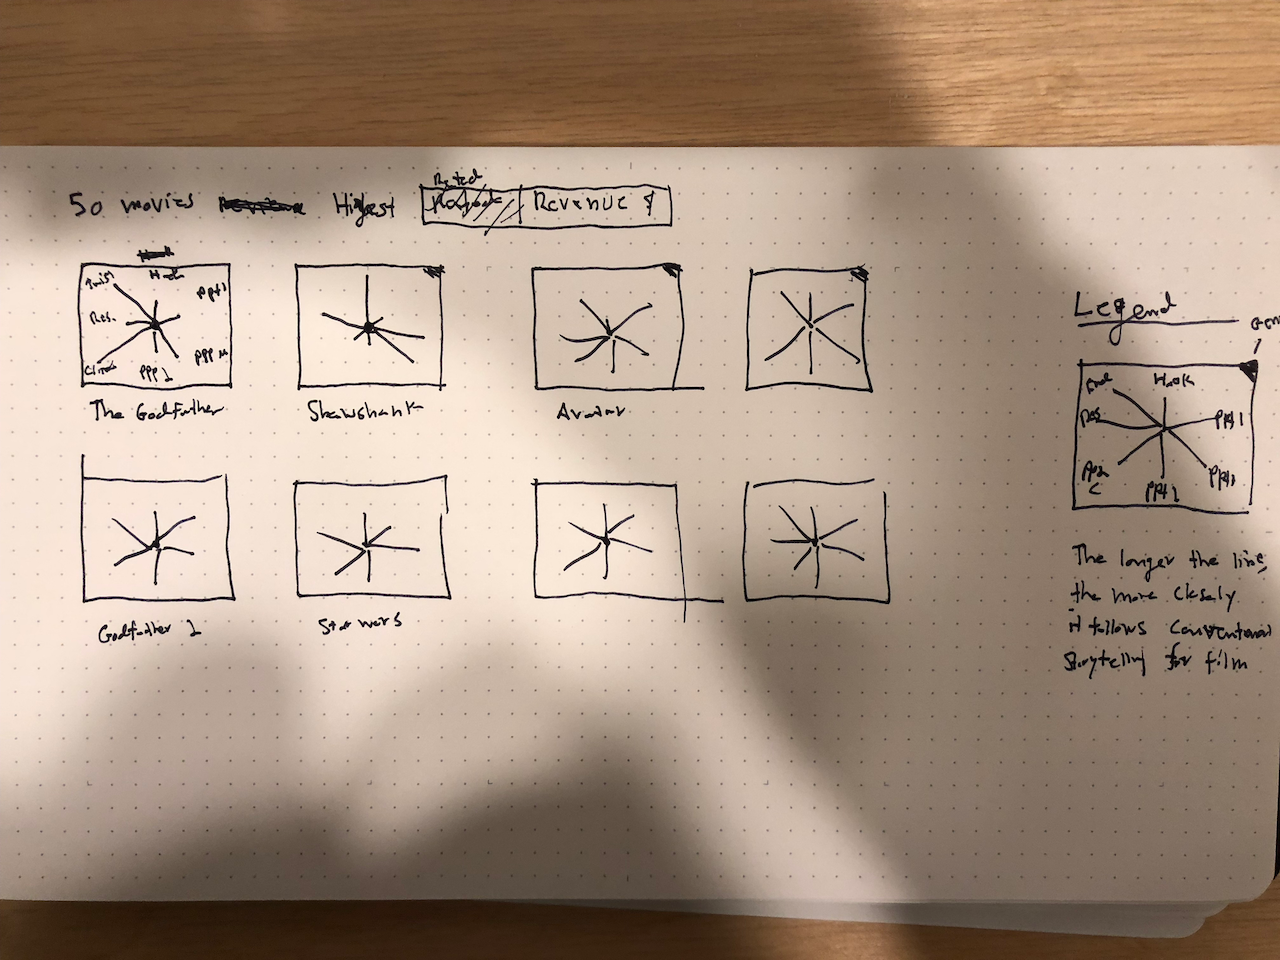 Rated
50 movies Highest Revenue $
Hook
Res.
PPP 2
The Godfather
Shawshank
Avatar
Godfather 2
Star wars
Legend
End
Hook
Res
PPt 1
PPt 2
The longer the line,
the more closely
it follows conventional
storytelling for film